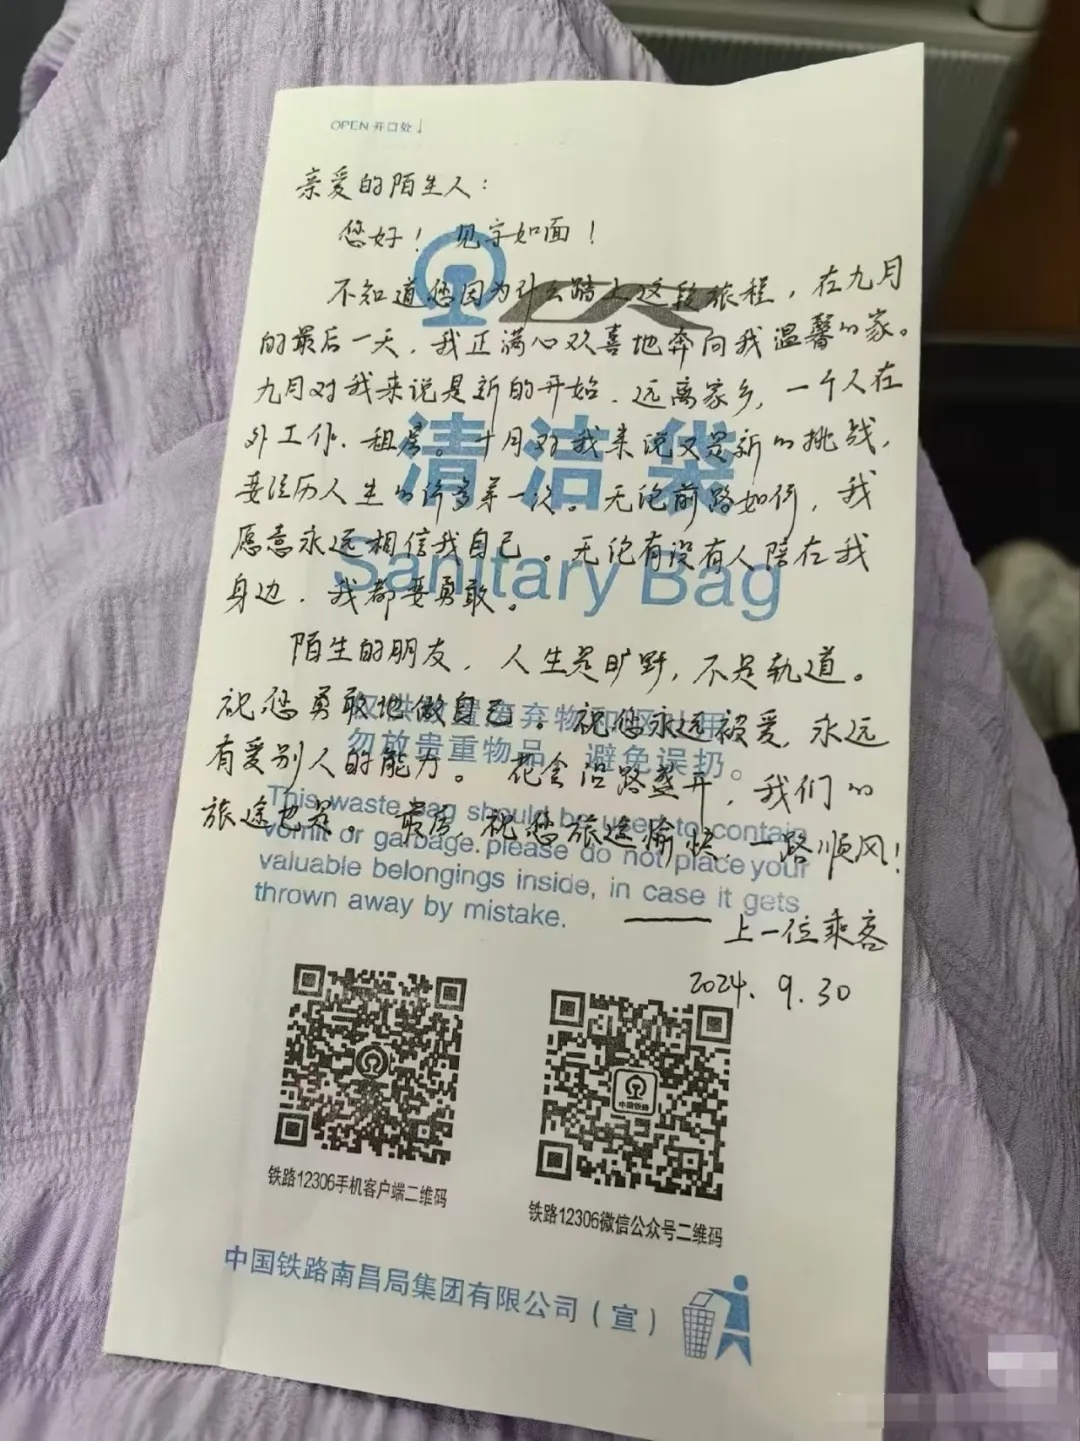 OPEN 开口处
亲爱的陌生人：
您好！见字如面！
不知道您因为什么踏上这段旅程，在九月
的最后一天，我正满心欢喜地奔向我温馨的家。
九月对我来说是新的开始．远离家乡，一个人在
外工作、租房。十月对我来说又是新的挑战，
要经历人生的许多第一次。无论前路如何，我
愿意永远相信我自己。无论有没有人陪在我
身边．我都要勇敢。
陌生的朋友，人生是旷野，不是轨道。
祝您勇敢地做自己。祝您永远被爱，永远
有爱别人的能力。花会沿路盛开，我们的
旅途也是。最后，祝您旅途愉快，一路顺风！
——上一位乘客
2024.9.30
清洁袋
Sanitary Bag
废弃物
勿放贵重物品，避免误扔。
This waste bag should be used to contain
vomit or garbage.please do not place your
valuable belongings inside, in case it gets
thrown away by mistake.
中国铁路
铁路12306手机客户端二维码
铁路12306微信公众号二维码
中国铁路南昌局集团有限公司（宣）